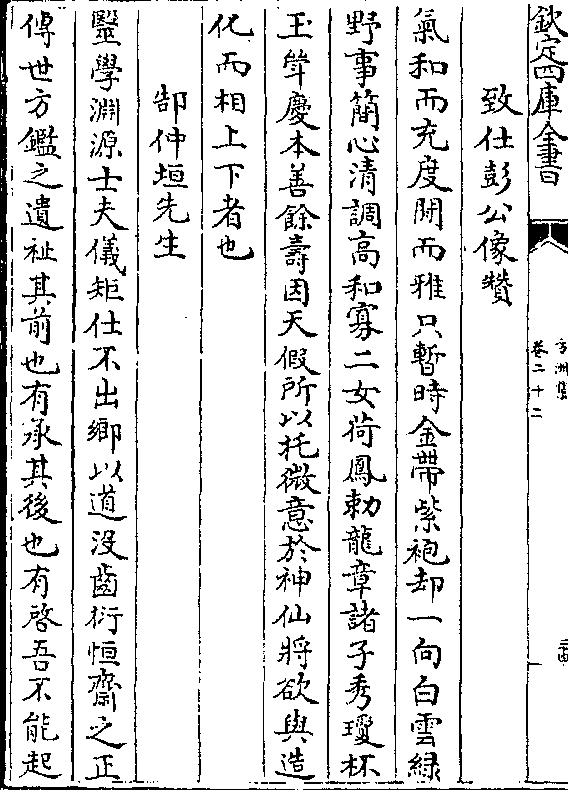 欽定四庫全書
方洲集
卷二十二
致仕彭公像贊
氣和而充度閎而雅只暫時金帶紫袍却一向白雲綠
野事簡心清調高和寡二女荷鳳勅龍章諸子秀瓊杯
玉斝慶本善餘壽因天假所以托微意於神仙將欲與造
化而相上下者也
郜仲垣先生
毉學淵源士夫儀矩仕不出鄉以道沒齒衍恒齋之正
傳世方鑑之遺祉其前也有承其後也有啓吾不能起